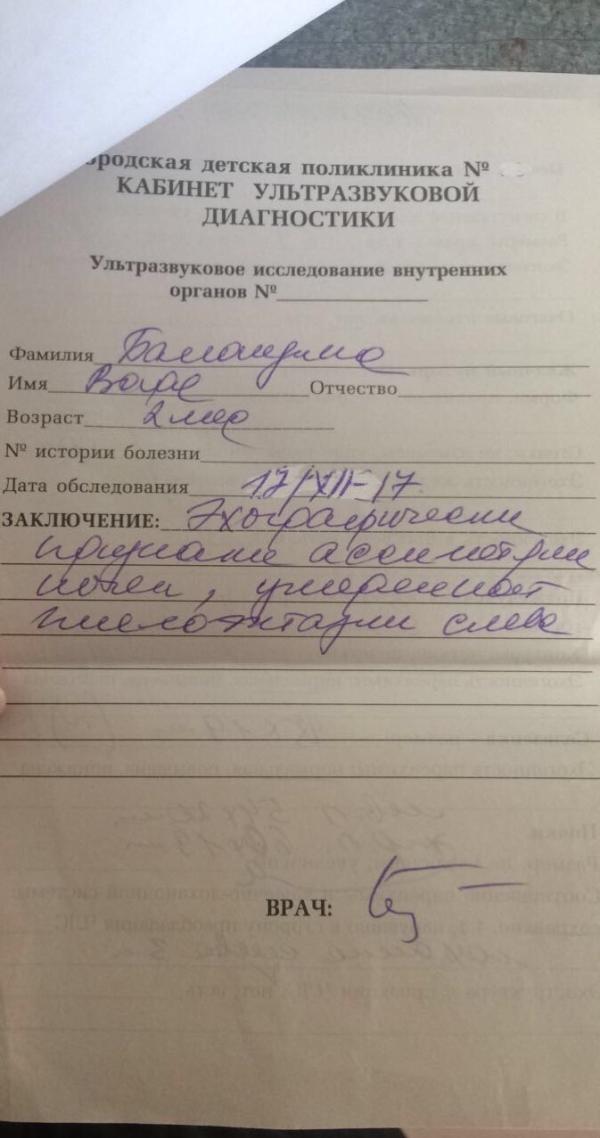 ородская детская поликлиника №
КАБИНЕТ УЛЬТРАЗВУКОВОЙ
ДИАГНОСТИКИ
Ультразвуковое исследование внутренних
органов №
Фамилия
Имя Отчество
Возраст 2 мес
№ истории болезни
Дата обследования 17/XII-17.
ЗАКЛЮЧЕНИЕ: Эхографически
признаки асимметрии
почек, умеренной
пиелоэктазии слева
ВРАЧ: